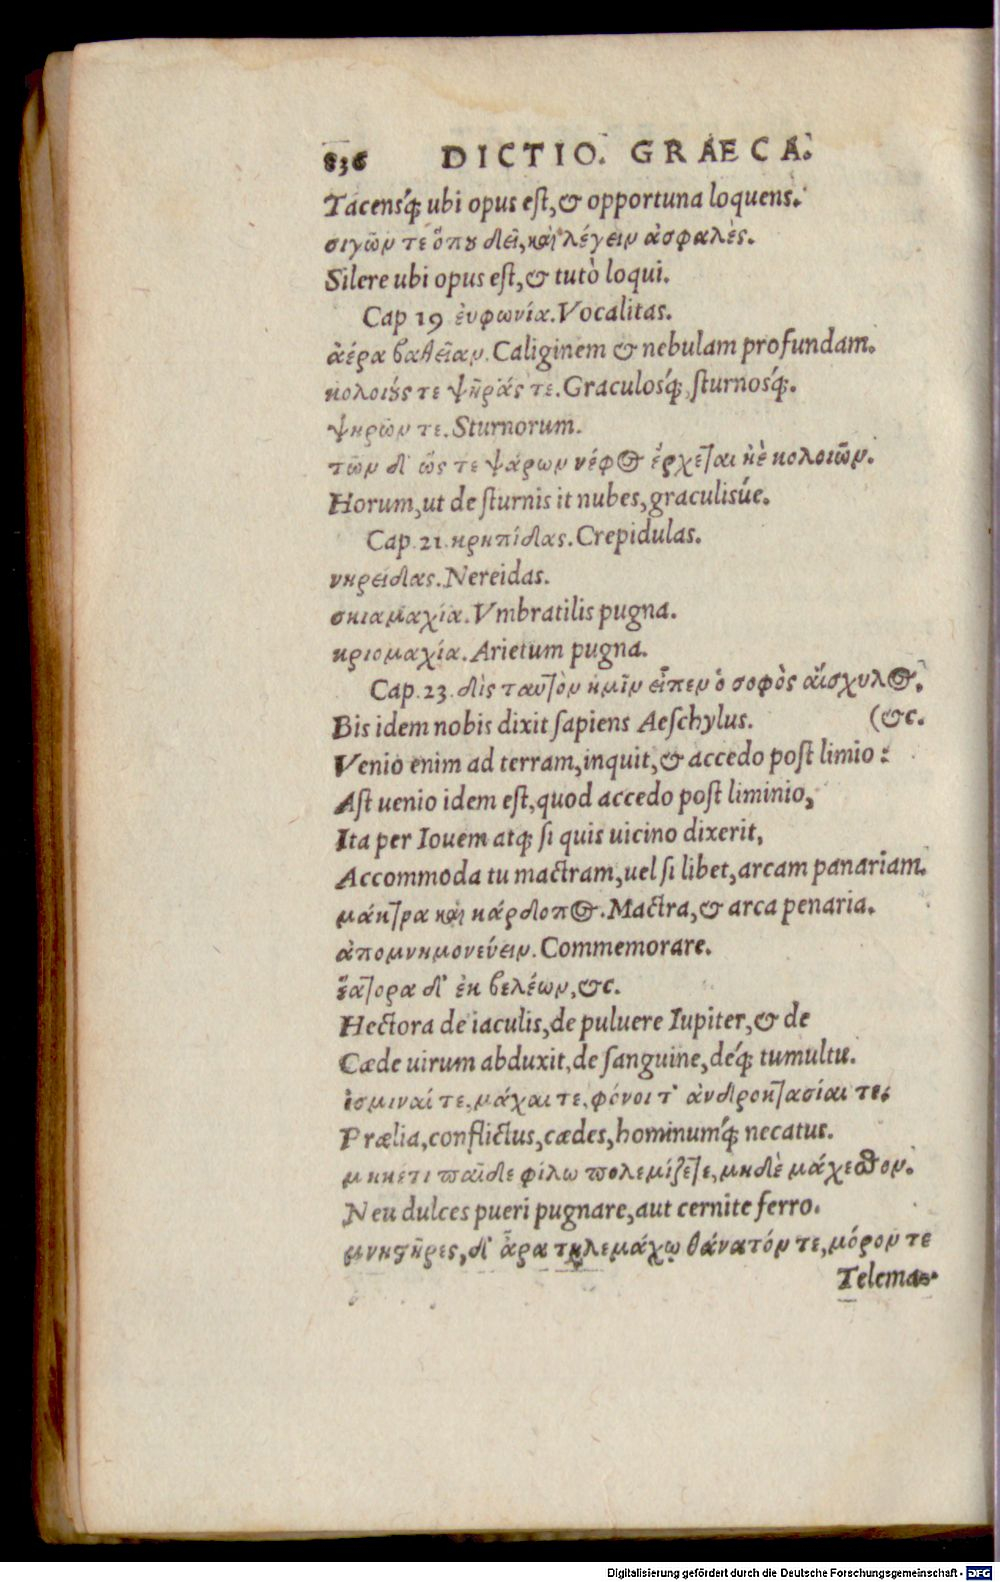 836 DICTIO. GRAECA.
Tacensq́; ubi opus eſt, & opportuna loquens.
σιγῶν τε ὅπȣ δεῖ, καὶ λέγειν ἀσφαλὲς.
Silere ubi opus eſt, & tutò loqui.
Cap 19 ἐυφωνία. Vocalitas.
ἀέρα βαθεῖαν. Caliginem & nebulam profundam.
κολοιȣ́ς τε ψῆράς τε. Graculosq́;, ſturnosq́;.
ψηρῶν τε. Sturnorum.
τῶν δ' ὥς τε ψάρων νέφος ἔρχεται ἠὲ κολοιῶν.
Horum, ut de ſturnis it nubes, graculisúe.
Cap. 21. κρηπίδας. Crepidulas.
νηρείδας. Nereidas.
σκιαμαχία. Vmbratilis pugna.
κριομαχία. Arietum pugna.
Cap. 23. δὶς ταυτὸν ἡμῖν εἶπεν ὁ σοφὸς αἴσχυλος.
Bis idem nobis dixit ſapiens Aeſchylus. (&c.
Venio enim ad terram, inquit, & accedo poſt limio:
Aſt uenio idem eſt, quod accedo poſt liminio,
Ita per Iouem atq; ſi quis uicino dixerit,
Accommoda tu mactram, uel ſi libet, arcam panariam.
μάκτρα καὶ κάρδοπος. Mactra, & arca penaria.
ἀπομνημονεύειν. Commemorare.
ἕατορα δ' ἐκ βελέων, &c.
Hectora de iaculis, de puluere Iupiter, & de
Cæde uirum abduxit, de ſanguine, deq́; tumultu.
ὑσμιναί τε, μάχαι τε, φόνοι τ' ἀνδροκτασίαι τε.
Prælia, conflictus, cædes, hominumq́; necatus.
μηκέτι παῖδε φίλω πολεμίζετε, μηδὲ μάχεσθον.
Neu dulces pueri pugnare, aut cernite ferro.
μνηστῆρες, δ' ἄρα τηλεμάχῳ θάνατόν τε, μόρον τε
Telema-
Digitalisierung gefördert durch die Deutsche Forschungsgemeinschaft - DFG